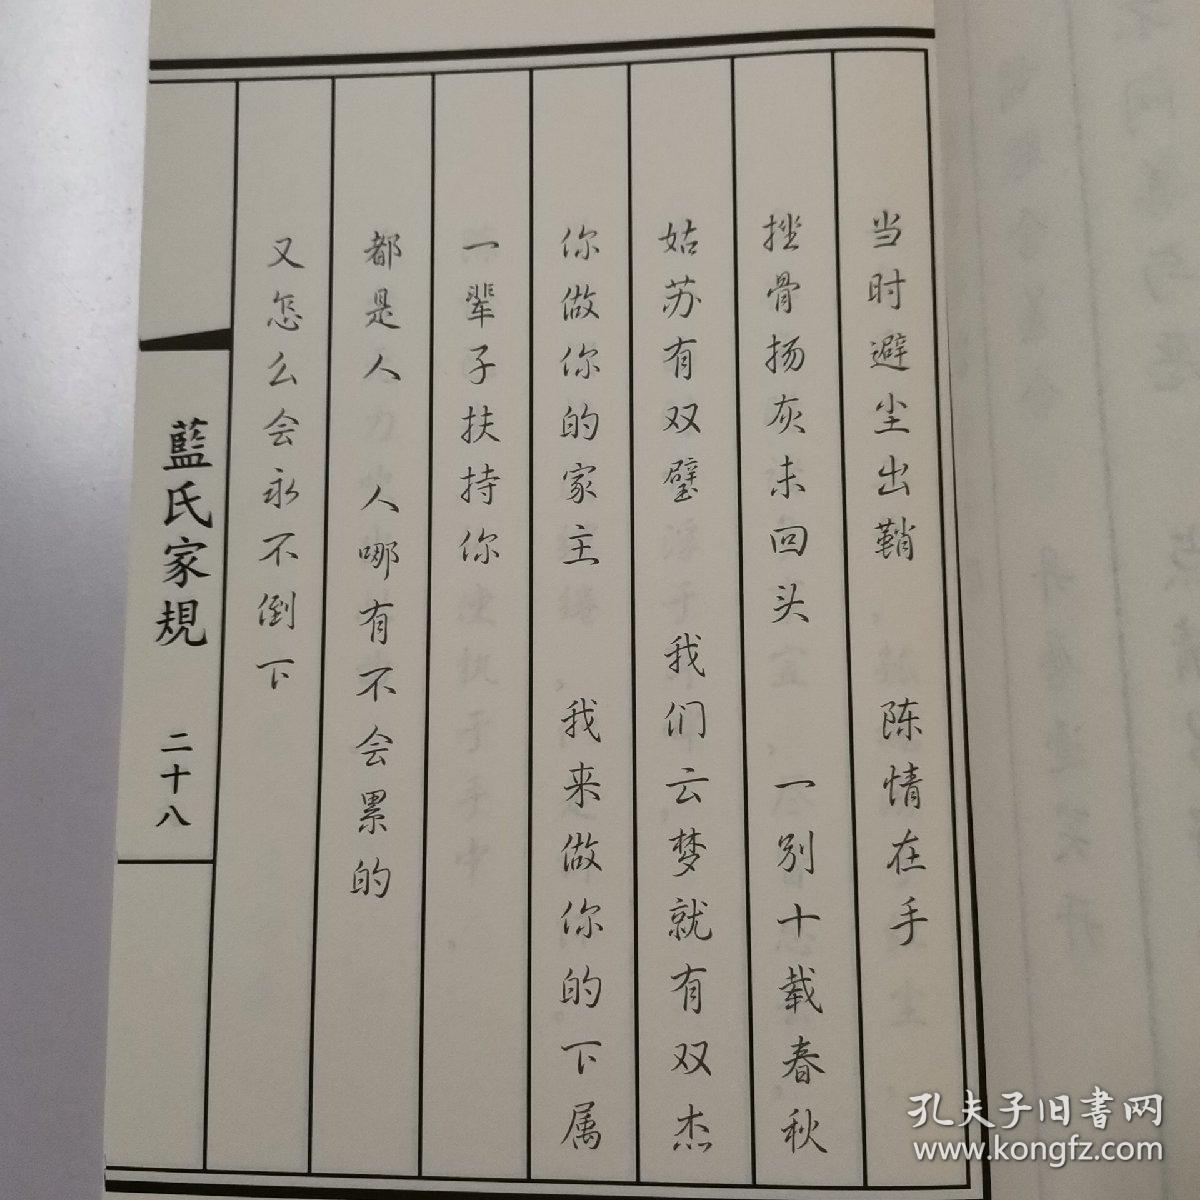 当时避尘出鞘 陈情在手
挫骨扬灰未回头 一别十载春秋
姑苏有双璧 我们云梦就有双杰
你做你的家主 我来做你的下属
一辈子扶持你
都是人 人哪有不会累的
又怎么会永不倒下
藍氏家規 二十八
孔夫子旧书网
www.kongfz.com